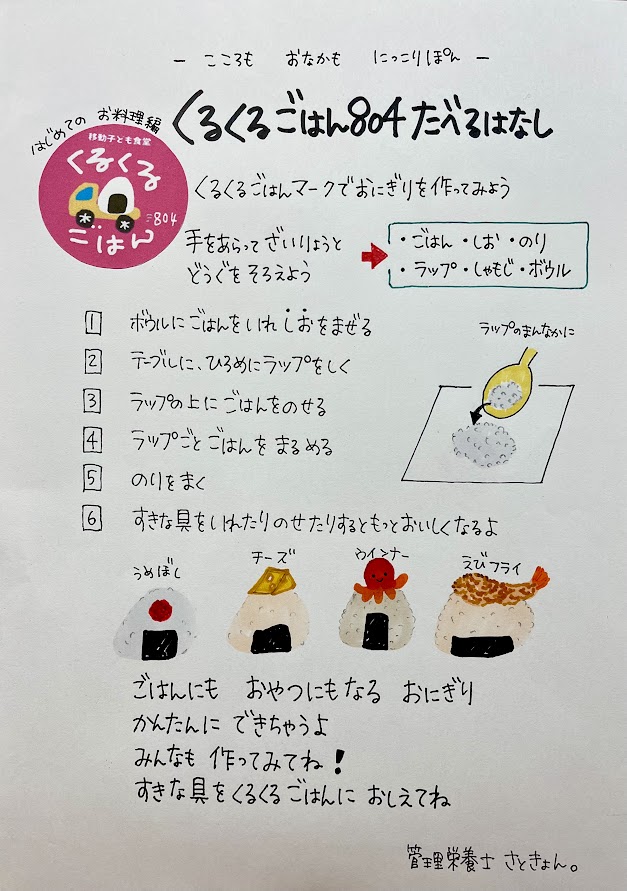 − こころも おなかも にっこりぽん −
はじめての お料理編
くるくるごはん804たべるはなし
移動子ども食堂
くるくる
804
ごはん
くるくるごはんマークでおにぎりを作ってみよう
手をあらってざいりょうと
どうぐをそろえよう
・ごはん ・しお ・のり
・ラップ・しゃもじ・ボウル
1 ボウルにごはんをいれしおをまぜる
2 テーブルに、ひろめにラップをしく
3 ラップの上にごはんをのせる
4 ラップごとごはんをまるめる
5 のりをまく
6 すきな具をいれたりのせたりするともっとおいしくなるよ
ラップのまんなかに
うめぼし
チーズ
ウインナー
えびフライ
ごはんにも おやつにもなる おにぎり
かんたんに できちゃうよ
みんなも 作ってみてね！
すきな具をくるくるごはんに おしえてね
管理栄養士 さときょん。